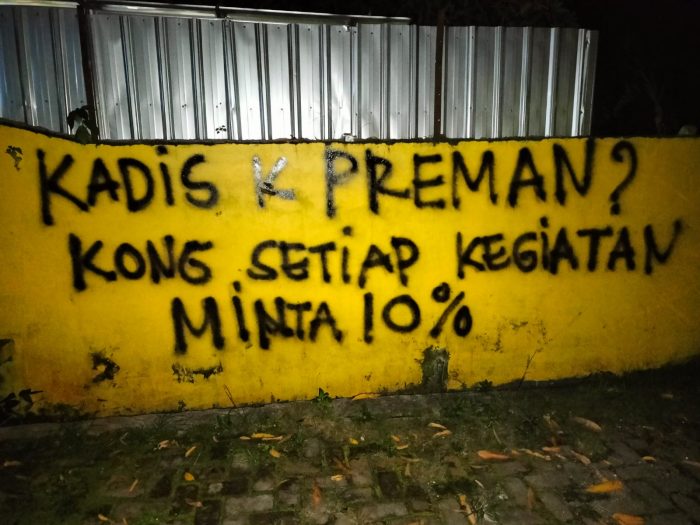 KADIS K PREMAN?
KONG SETIAP KEGIATAN
MINTA 10%